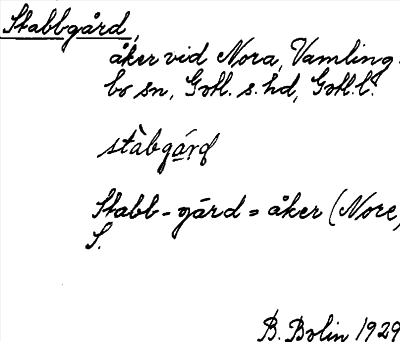 Stabbgård,
åker vid Nora, Vamling-
bo sn, Gotl. s. hd, Gotl. l.
stàbgárd
Stabb-gård = åker (Nore,
S.
B. Bolin 1929